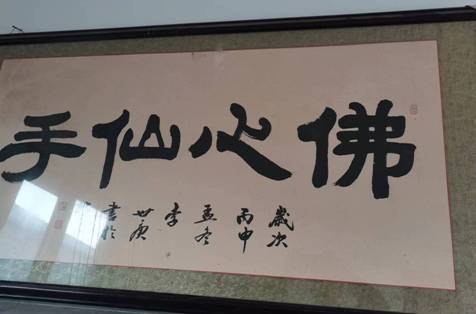 佛心仙手
歲次
丙申
孟冬
李
世庚
書於